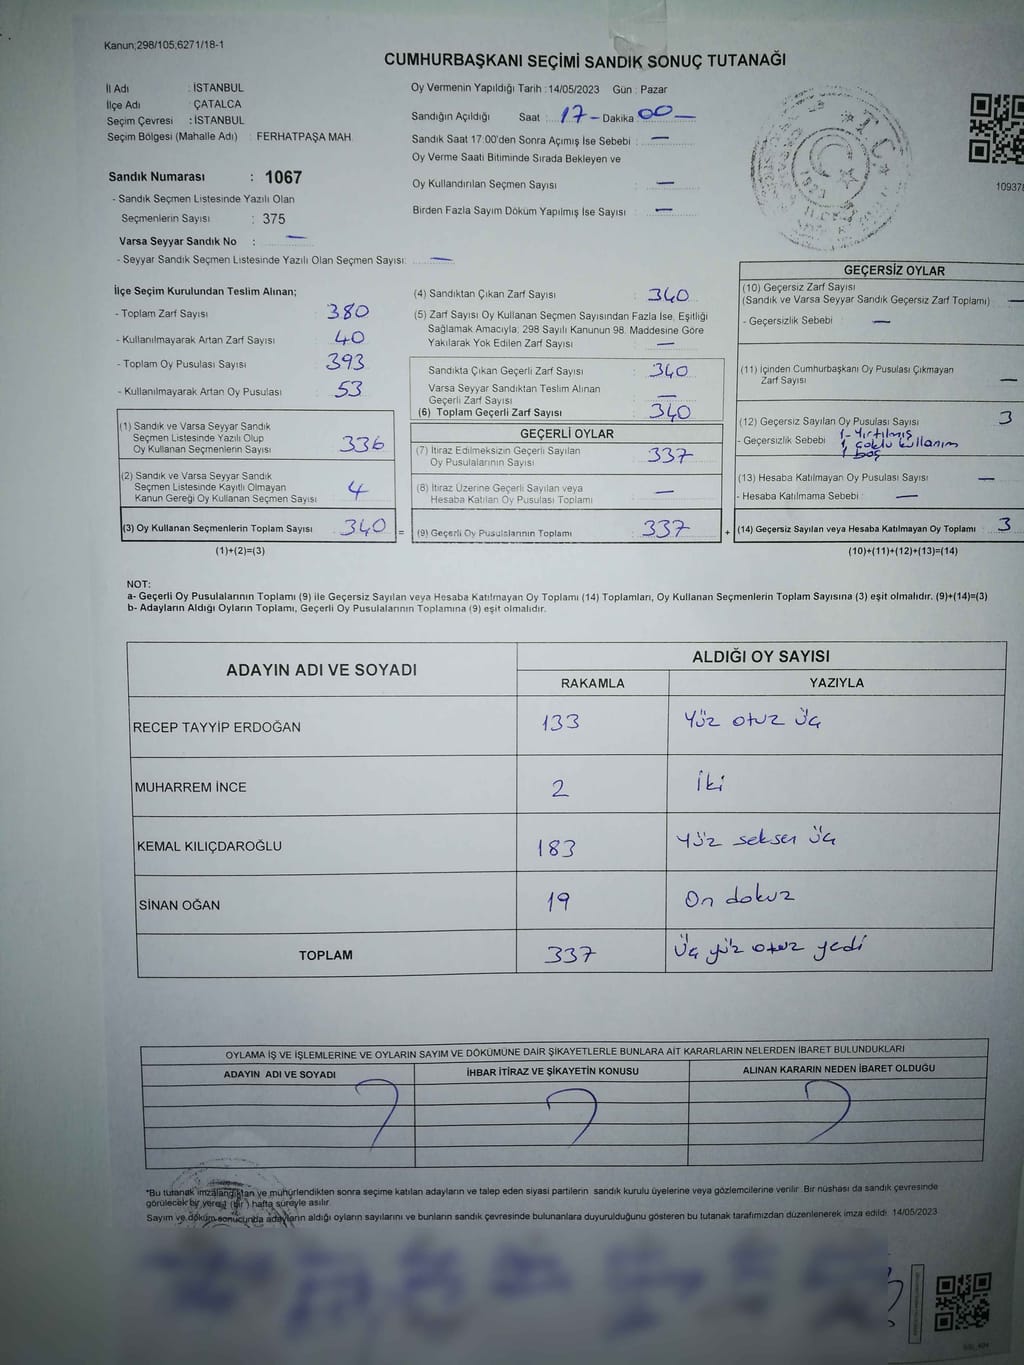 Kanun;298/105;6271/18-1
CUMHURBAŞKANI SEÇİMİ SANDIK SONUÇ TUTANAĞI
İl Adı : İSTANBUL
İlçe Adı : ÇATALCA
Seçim Çevresi : İSTANBUL
Seçim Bölgesi (Mahalle Adı) : FERHATPAŞA MAH.
Sandık Numarası : 1067
- Sandık Seçmen Listesinde Yazılı Olan
Seçmenlerin Sayısı : 375
Varsa Seyyar Sandık No : —
- Seyyar Sandık Seçmen Listesinde Yazılı Olan Seçmen Sayısı: —
Oy Vermenin Yapıldığı Tarih : 14/05/2023 Gün : Pazar
Sandığın Açıldığı Saat : 17 - Dakika 00 —
Sandık Saat 17:00'den Sonra Açımış İse Sebebi : —
Oy Verme Saati Bitiminde Sırada Bekleyen ve
Oy Kullandırılan Seçmen Sayısı : —
Birden Fazla Sayım Döküm Yapılmış İse Sayısı : —
T.C.
10937
İlçe Seçim Kurulundan Teslim Alınan;
- Toplam Zarf Sayısı : 380
- Kullanılmayarak Artan Zarf Sayısı : 40
- Toplam Oy Pusulası Sayısı : 393
- Kullanılmayarak Artan Oy Pusulası : 53
(1) Sandık ve Varsa Seyyar Sandık
Seçmen Listesinde Yazılı Olup
Oy Kullanan Seçmenlerin Sayısı : 336
(2) Sandık ve Varsa Seyyar Sandık
Seçmen Listesinde Kayıtlı Olmayan
Kanun Gereği Oy Kullanan Seçmen Sayısı : 4
(3) Oy Kullanan Seçmenlerin Toplam Sayısı : 340 =
(1)+(2)=(3)
(4) Sandıktan Çıkan Zarf Sayısı : 340
(5) Zarf Sayısı Oy Kullanan Seçmen Sayısından Fazla İse, Eşitliği
Sağlamak Amacıyla; 298 Sayılı Kanunun 98. Maddesine Göre
Yakılarak Yok Edilen Zarf Sayısı : —
Sandıkta Çıkan Geçerli Zarf Sayısı : 340
Varsa Seyyar Sandıktan Teslim Alınan
Geçerli Zarf Sayısı : —
(6) Toplam Geçerli Zarf Sayısı : 340
GEÇERLİ OYLAR
(7) İtiraz Edilmeksizin Geçerli Sayılan
Oy Pusulalarının Sayısı : 337
(8) İtiraz Üzerine Geçerli Sayılan veya
Hesaba Katılan Oy Pusulası Toplamı : —
(9) Geçerli Oy Pusulalarının Toplamı : 337 +
GEÇERSİZ OYLAR
(10) Geçersiz Zarf Sayısı
(Sandık ve Varsa Seyyar Sandık Geçersiz Zarf Toplamı) : —
- Geçersizlik Sebebi : —
(11) İçinden Cumhurbaşkanı Oy Pusulası Çıkmayan
Zarf Sayısı : —
(12) Geçersiz Sayılan Oy Pusulası Sayısı : 3
- Geçersizlik Sebebi : 1- Yırtılmış
1, çoklu kullanım
1 boş
(13) Hesaba Katılmayan Oy Pusulası Sayısı : —
- Hesaba Katılmama Sebebi : —
(14) Geçersiz Sayılan veya Hesaba Katılmayan Oy Toplamı : 3
(10)+(11)+(12)+(13)=(14)
NOT:
a- Geçerli Oy Pusulalarının Toplamı (9) ile Geçersiz Sayılan veya Hesaba Katılmayan Oy Toplamı (14) Toplamları, Oy Kullanan Seçmenlerin Toplam Sayısına (3) eşit olmalıdır. (9)+(14)=(3)
b- Adayların Aldığı Oyların Toplamı, Geçerli Oy Pusulalarının Toplamına (9) eşit olmalıdır.
ADAYIN ADI VE SOYADI ALDIĞI OY SAYISI
RAKAMLA YAZIYLA
RECEP TAYYİP ERDOĞAN 133 Yüz otuz üç
MUHARREM İNCE 2 İki
KEMAL KILIÇDAROĞLU 183 Yüz seksen üç
SİNAN OĞAN 19 On dokuz
TOPLAM 337 Üç yüz otuz yedi
OYLAMA İŞ VE İŞLEMLERİNE VE OYLARIN SAYIM VE DÖKÜMÜNE DAİR ŞİKAYETLERLE BUNLARA AİT KARARLARIN NELERDEN İBARET BULUNDUKLARI
ADAYIN ADI VE SOYADI İHBAR İTİRAZ VE ŞİKAYETİN KONUSU ALINAN KARARIN NEDEN İBARET OLDUĞU
*Bu tutanak imzalandıktan ve mühürlendikten sonra seçime katılan adayların ve talep eden siyasi partilerin sandık kurulu üyelerine veya gözlemcilerine verilir. Bir nüshası da sandık çevresinde
görülecek bir yere (bir) hafta süreyle asılır.
Sayım ve döküm sonucunda adayların aldığı oyların sayılarını ve bunların sandık çevresinde bulunanlara duyurulduğunu gösteren bu tutanak tarafımızdan düzenlenerek imza edildi. 14/05/2023